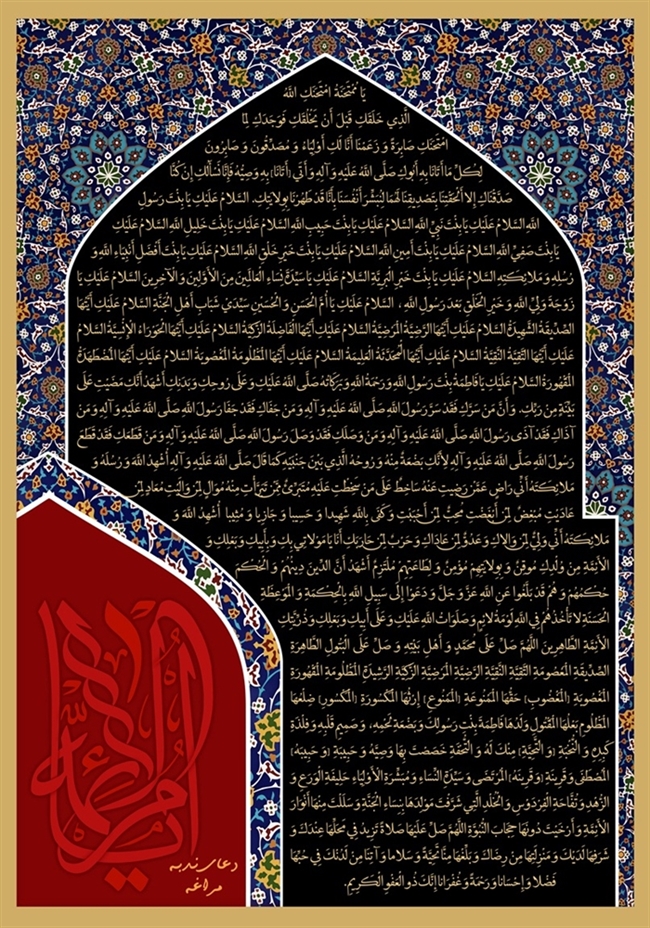 يَا مُمْتَحَنَةُ امْتَحَنَكِ اللهُ
الَّذِي خَلَقَكِ قَبْلَ أَنْ يَخْلُقَكِ فَوَجَدَكِ لِمَا
امْتَحَنَكِ صَابِرَةً وَ زَعَمْنَا أَنَّا لَكِ أَوْلِيَاءُ وَ مُصَدِّقُونَ وَ صَابِرُونَ
لِكُلِّ مَا أَتَانَا بِهِ أَبُوكِ صَلَّى اللهُ عَلَيْهِ وَ آلِهِ وَ أَتَى (أَتَانَا) بِهِ وَصِيُّهُ فَإِنَّا نَسْأَلُكِ إِنْ كُنَّا
صَدَّقْنَاكِ إِلا أَلْحَقْتِنَا بِتَصْدِيقِنَا لَهُمَا لِنُبَشِّرَ أَنْفُسَنَا بِأَنَّا قَدْ طَهُرْنَا بِوِلايَتِكِ. السَّلامُ عَلَيْكِ يَا بِنْتَ رَسُولِ
اللهِ السَّلامُ عَلَيْكِ يَا بِنْتَ نَبِيِّ اللهِ السَّلامُ عَلَيْكِ يَا بِنْتَ حَبِيبِ اللهِ السَّلامُ عَلَيْكِ يَا بِنْتَ خَلِيلِ اللهِ السَّلامُ عَلَيْكِ
يَا بِنْتَ صَفِيِّ اللهِ السَّلامُ عَلَيْكِ يَا بِنْتَ أَمِينِ اللهِ السَّلامُ عَلَيْكِ يَا بِنْتَ خَيْرِ خَلْقِ اللهِ السَّلامُ عَلَيْكِ يَا بِنْتَ أَفْضَلِ أَنْبِيَاءِ اللهِ وَ
رُسُلِهِ وَ مَلائِكَتِهِ السَّلامُ عَلَيْكِ يَا بِنْتَ خَيْرِ الْبَرِيَّةِ السَّلامُ عَلَيْكِ يَا سَيِّدَةَ نِسَاءِ الْعَالَمِينَ مِنَ الْأَوَّلِينَ وَ الْآخِرِينَ السَّلامُ عَلَيْكِ يَا
زَوْجَةَ وَلِيِّ اللهِ وَ خَيْرِ الْخَلْقِ بَعْدَ رَسُولِ اللهِ ، السَّلامُ عَلَيْكِ يَا أُمَّ الْحَسَنِ وَ الْحُسَيْنِ سَيِّدَيْ شَبَابِ أَهْلِ الْجَنَّةِ السَّلامُ عَلَيْكِ أَيَّتُهَا
الصِّدِّيقَةُ الشَّهِيدَةُ السَّلامُ عَلَيْكِ أَيَّتُهَا الرَّضِيَّةُ الْمَرْضِيَّةُ السَّلامُ عَلَيْكِ أَيَّتُهَا الْفَاضِلَةُ الزَّكِيَّةُ السَّلامُ عَلَيْكِ أَيَّتُهَا الْحَوْرَاءُ الْإِنْسِيَّةُ السَّلامُ
عَلَيْكِ أَيَّتُهَا التَّقِيَّةُ النَّقِيَّةُ السَّلامُ عَلَيْكِ أَيَّتُهَا الْمُحَدَّثَةُ الْعَلِيمَةُ السَّلامُ عَلَيْكِ أَيَّتُهَا الْمَظْلُومَةُ الْمَغْصُوبَةُ السَّلامُ عَلَيْكِ أَيَّتُهَا الْمُضْطَهَدَةُ
الْمَقْهُورَةُ السَّلامُ عَلَيْكِ يَا فَاطِمَةُ بِنْتَ رَسُولِ اللهِ وَ رَحْمَةُ اللهِ وَ بَرَكَاتُهُ صَلَّى اللهُ عَلَيْكِ وَ عَلَى رُوحِكِ وَ بَدَنِكِ أَشْهَدُ أَنَّكِ مَضَيْتِ عَلَى
بَيِّنَةٍ مِنْ رَبِّكِ. وَ أَنَّ مَنْ سَرَّكِ فَقَدْ سَرَّ رَسُولَ اللهِ صَلَّى اللهُ عَلَيْهِ وَ آلِهِ وَ مَنْ جَفَاكِ فَقَدْ جَفَا رَسُولَ اللهِ صَلَّى اللهُ عَلَيْهِ وَ آلِهِ وَ مَنْ
آذَاكِ فَقَدْ آذَى رَسُولَ اللهِ صَلَّى اللهُ عَلَيْهِ وَ آلِهِ وَ مَنْ وَصَلَكِ فَقَدْ وَصَلَ رَسُولَ اللهِ صَلَّى اللهُ عَلَيْهِ وَ آلِهِ وَ مَنْ قَطَعَكِ فَقَدْ قَطَعَ
رَسُولَ اللهِ صَلَّى اللهُ عَلَيْهِ وَ آلِهِ لِأَنَّكِ بَضْعَةٌ مِنْهُ وَ رُوحُهُ الَّذِي بَيْنَ جَنْبَيْهِ كَمَا قَالَ صَلَّى اللهُ عَلَيْهِ وَ آلِهِ أُشْهِدُ اللهَ وَ رُسُلَهُ وَ
مَلائِكَتَهُ أَنِّي رَاضٍ عَمَّنْ رَضِيتِ عَنْهُ سَاخِطٌ عَلَى مَنْ سَخِطْتِ عَلَيْهِ مُتَبَرِّئٌ مِمَّنْ تَبَرَّأْتِ مِنْهُ مُوَالٍ لِمَنْ وَالَيْتِ مُعَادٍ لِمَنْ
عَادَيْتِ مُبْغِضٌ لِمَنْ أَبْغَضْتِ مُحِبٌّ لِمَنْ أَحْبَبْتِ وَ كَفَى بِاللهِ شَهِيدا وَ حَسِيبا وَ جَازِيا وَ مُثِيبا أُشْهِدُ اللهَ وَ
مَلائِكَتَهُ أَنِّي وَلِيٌّ لِمَنْ وَالاكِ وَ عَدُوٌّ لِمَنْ عَادَاكِ وَ حَرْبٌ لِمَنْ حَارَبَكِ أَنَا يَا مَوْلاتِي بِكِ وَ بِأَبِيكِ وَ بَعْلِكِ وَ
الْأَئِمَّةِ مِنْ وُلْدِكِ مُوقِنٌ وَ بِوِلايَتِهِمْ مُؤْمِنٌ وَ لِطَاعَتِهِمْ مُلْتَزِمٌ أَشْهَدُ أَنَّ الدِّينَ دِينُهُمْ وَ الْحُكْمَ
حُكْمُهُمْ وَ هُمْ قَدْ بَلَّغُوا عَنِ اللهِ عَزَّ وَ جَلَّ وَ دَعَوْا إِلَى سَبِيلِ اللهِ بِالْحِكْمَةِ وَ الْمَوْعِظَةِ
الْحَسَنَةِ لا تَأْخُذُهُمْ فِي اللهِ لَوْمَةُ لائِمٍ وَ صَلَوَاتُ اللهِ عَلَيْكِ وَ عَلَى أَبِيكِ وَ بَعْلِكِ وَ ذُرِّيَّتِكِ
الْأَئِمَّةِ الطَّاهِرِينَ اللَّهُمَّ صَلِّ عَلَى مُحَمَّدٍ وَ أَهْلِ بَيْتِهِ وَ صَلِّ عَلَى الْبَتُولِ الطَّاهِرَةِ
الصِّدِّيقَةِ الْمَعْصُومَةِ التَّقِيَّةِ النَّقِيَّةِ الرَّضِيَّةِ الْمَرْضِيَّةِ الزَّكِيَّةِ الرَّشِيدَةِ الْمَظْلُومَةِ الْمَقْهُورَةِ
الْمَغْصُوبَةِ (الْمَغْصُوبِ) حَقُّهَا الْمَمْنُوعَةِ (الْمَمْنُوعِ) إِرْثُهَا الْمَكْسُورَةِ (الْمَكْسُورِ) ضِلْعُهَا
الْمَظْلُومِ بَعْلُهَا الْمَقْتُولِ وَلَدُهَا فَاطِمَةَ بِنْتِ رَسُولِكَ وَ بَضْعَةِ لَحْمِهِ، وَ صَمِيمِ قَلْبِهِ وَ فِلْذَةِ
كَبِدِهِ وَ النُّخْبَةِ (وَ التَّحِيَّةِ) مِنْكَ لَهُ وَ التُّحْفَةِ خَصَصْتَ بِهَا وَصِيَّهُ وَ حَبِيبَةِ (وَ حَبِيبَهُ)
الْمُصْطَفَى وَ قَرِينَةِ (وَ قَرِينَهُ) الْمُرْتَضَى وَ سَيِّدَةِ النِّسَاءِ وَ مُبَشِّرَةِ الْأَوْلِيَاءِ حَلِيفَةِ الْوَرَعِ وَ
الزُّهْدِ وَ تُفَّاحَةِ الْفِرْدَوْسِ وَ الْخُلْدِ الَّتِي شَرَّفْتَ مَوْلِدَهَا بِنِسَاءِ الْجَنَّةِ وَ سَلَلْتَ مِنْهَا أَنْوَارَ
الْأَئِمَّةِ وَ أَرْخَيْتَ دُونَهَا حِجَابَ النُّبُوَّةِ اللَّهُمَّ صَلِّ عَلَيْهَا صَلاةً تَزِيدُ فِي مَحَلِّهَا عِنْدَكَ وَ
شَرَفِهَا لَدَيْكَ وَ مَنْزِلَتِهَا مِنْ رِضَاكَ وَ بَلِّغْهَا مِنَّا تَحِيَّةً وَ سَلاما وَ آتِنَا مِنْ لَدُنْكَ فِي حُبِّهَا
فَضْلا وَ إِحْسَانا وَ رَحْمَةً وَ غُفْرَانا إِنَّكَ ذُو الْعَفْوِ الْكَرِيمِ.
دعای ندبه
مراغه